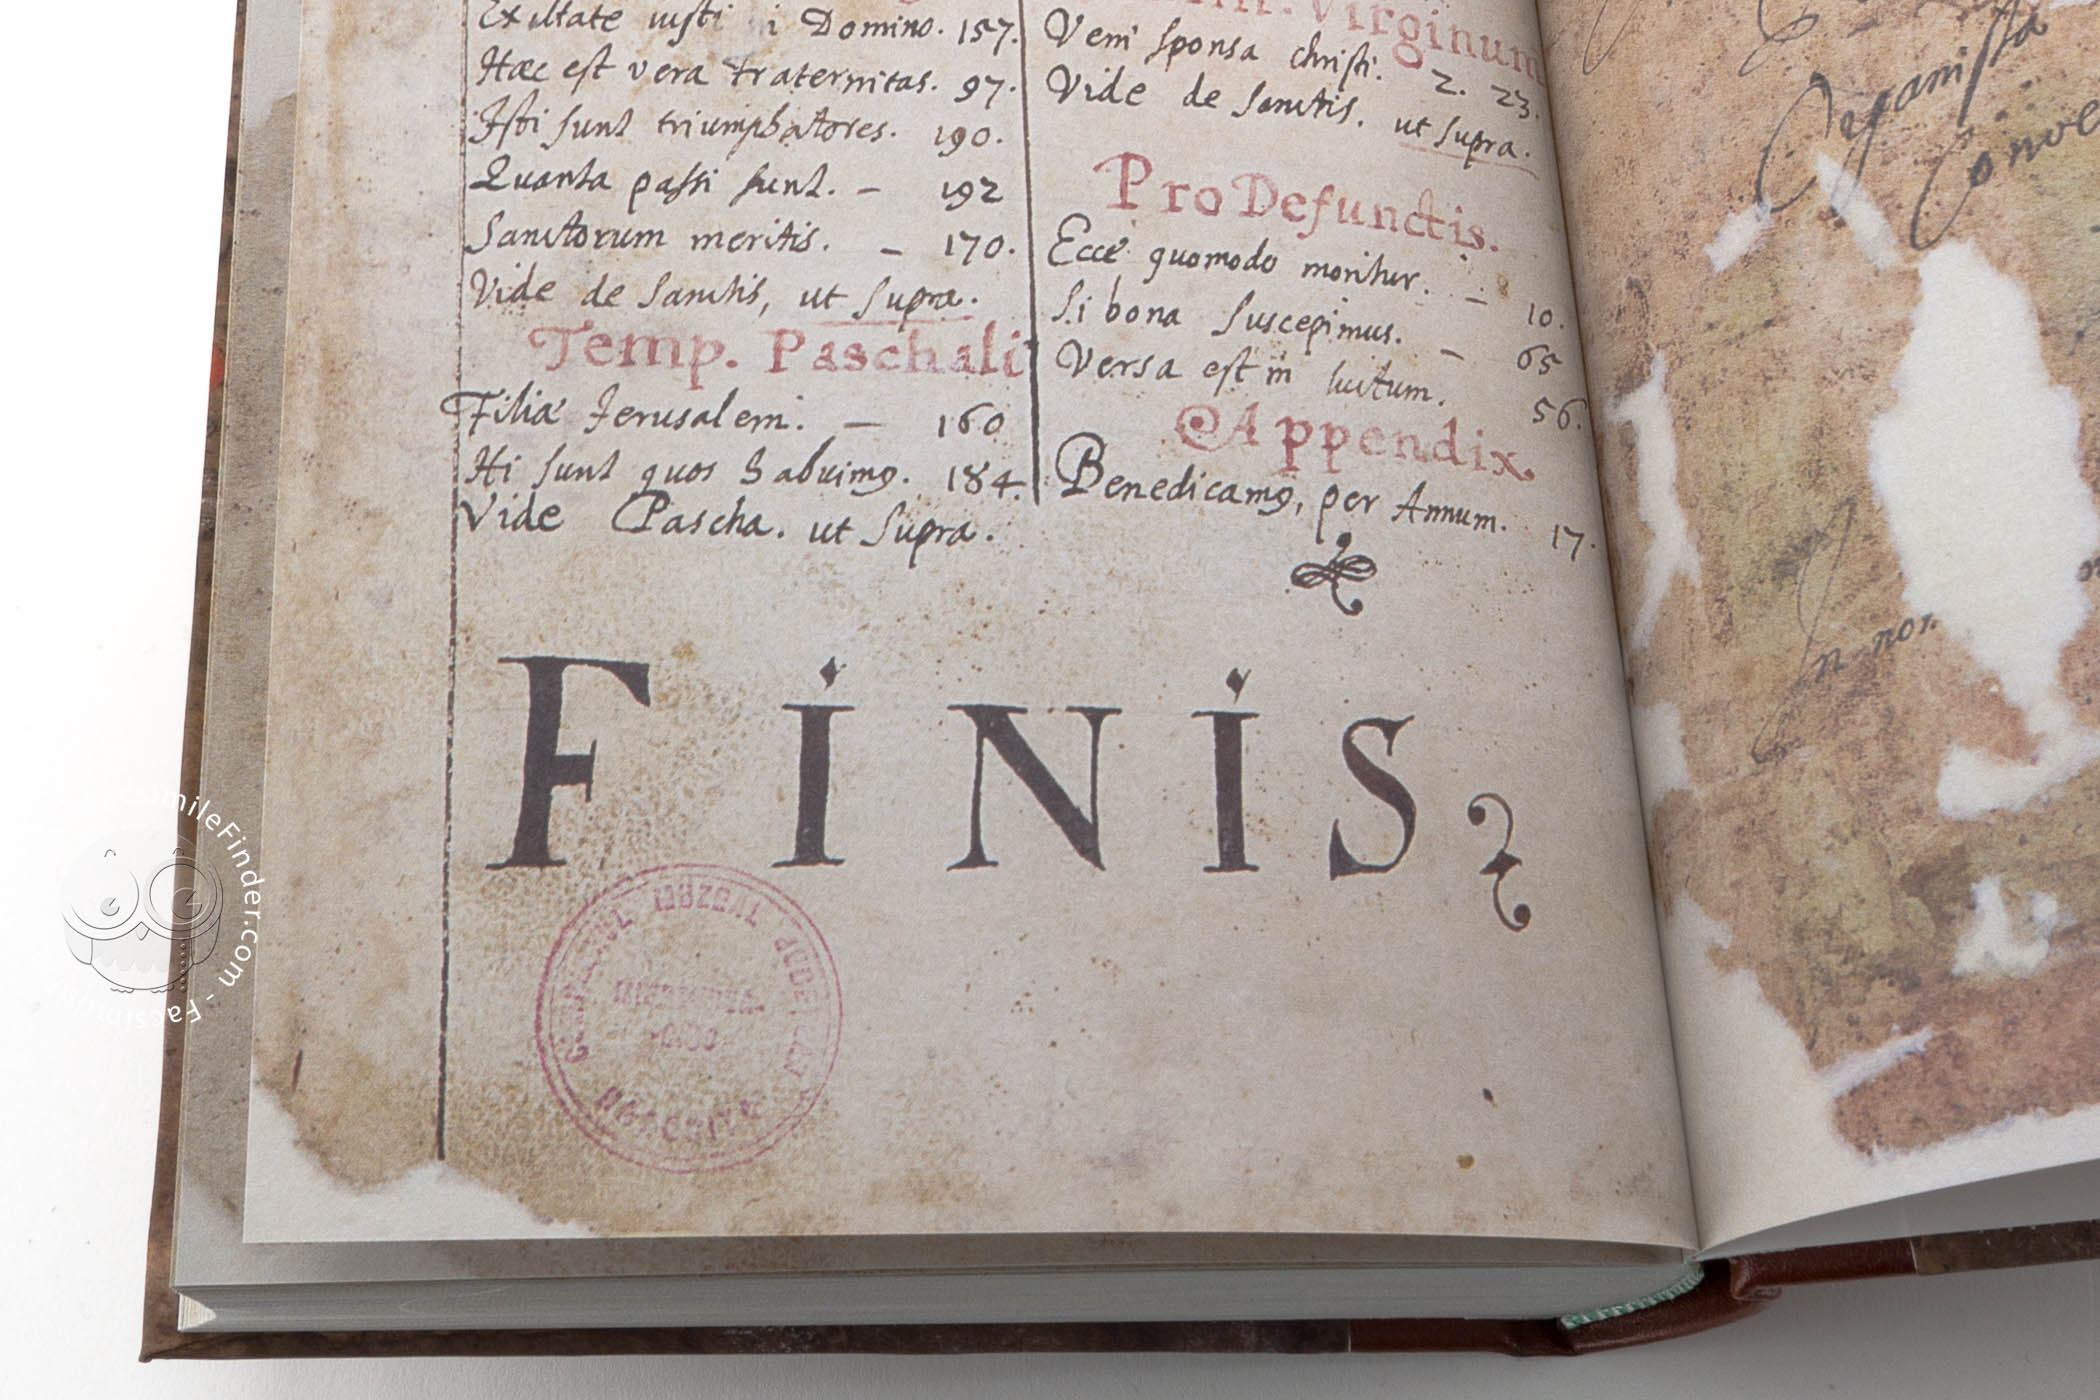 Exultate iusti in Domino. 157.
Hæc est vera fraternitas. 97.
Isti sunt triumphatores. 190.
Quanta passi sunt. – 192
Sanctorum meritis. – 170.
Vide de Sanctis, ut supra.
Temp. Paschali
Filiæ Jerusalem. – 160
Hi sunt quos habuimꝰ. 184.
Vide Pascha. ut supra.
Virginum
Veni sponsa christi. 2. 23.
Vide de Sanctis. ut supra.
Pro Defunctis.
Ecce quomodo moritur. – 10.
Si bona suscepimus. – 65
Versa est in luctum. 56.
Appendix.
Benedicamꝰ, per Annum. 17.
FINIS
Organista
In nom